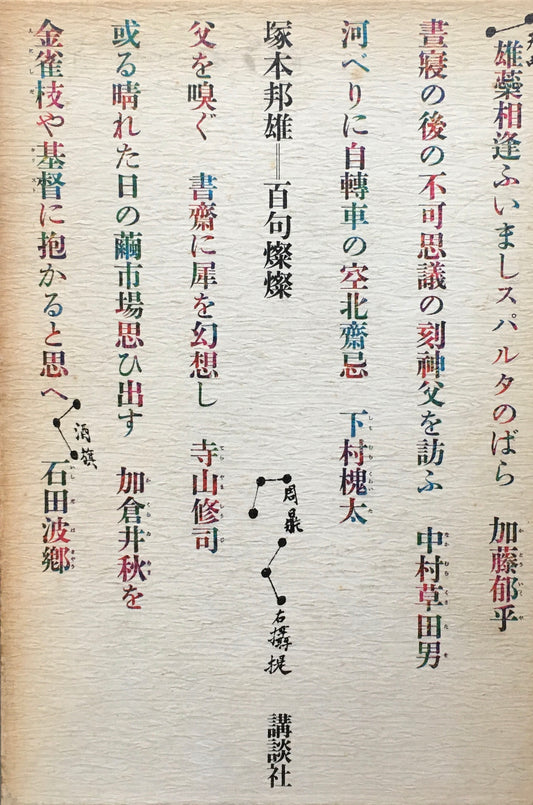 雄蘂相逢ふいましスパルタのばら　加藤郁乎
晝寢の後の不可思議の刻神父を訪ふ　中村草田男
河べりに自轉車の空北齋忌　下村槐太
塚本邦雄＝百句燦燦
周鼎
右攝提
講談社
父を嗅ぐ　書齋に犀を幻想し　寺山修司
或る晴れた日の繭市場思ひ出す　加倉井秋を
金雀枝や基督に抱かると思へ　石田波鄕
酒旗